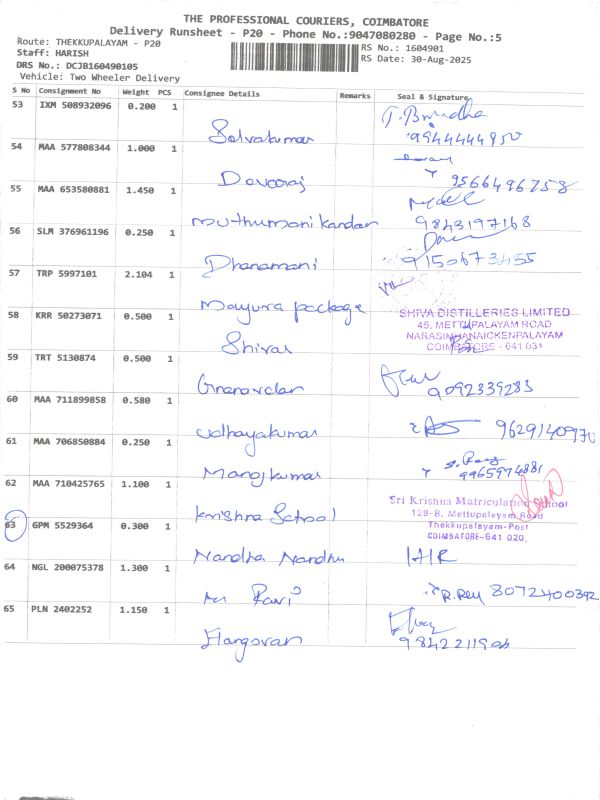 THE PROFESSIONAL COURIERS, COIMBATORE
Delivery Runsheet - P20 - Phone No.:9047080280 - Page No.:5
Route: THEKKUPALAYAM - P20
Staff: HARISH
DRS No.: DCJB160490105
Vehicle: Two Wheeler Delivery
RS No.: 1604901
RS Date: 30-Aug-2025
S No Consignment No Weight PCS Consignee Details Remarks Seal & Signature
53 IXM 508932096 0.200 1 Selvakumar
9944444950
54 MAA 577808344 1.000 1 Devaraj
9566496758
55 MAA 653580881 1.450 1 Muthumanikandan
9843197168
56 SLM 376961196 0.250 1 Dhanamani
9150673455
57 TRP 5997101 2.104 1 Mayura package
58 KRR 50273071 0.500 1 Shivas
SHIVA DISTILLERIES LIMITED
45, METTUPALAYAM ROAD
NARASIMHANAICKENPALAYAM
COIMBATORE - 641 031
59 TRT 5130874 0.500 1
9092339283
60 MAA 711899858 0.580 1 Udhayakumar
9629140970
61 MAA 706850884 0.250 1 Manojkumar
9965974881
62 MAA 710425765 1.100 1 Krishna School
Sri Krishna Matriculation School
129-B, Mettupalayam Road
Thekkupalayam-Post
COIMBATORE-641 020.
63 GPM 5529364 0.300 1 Nandha Nandhu
64 NGL 200075378 1.300 1 Mr Ravi
8072400392
65 PLN 2402252 1.150 1 Elangovan